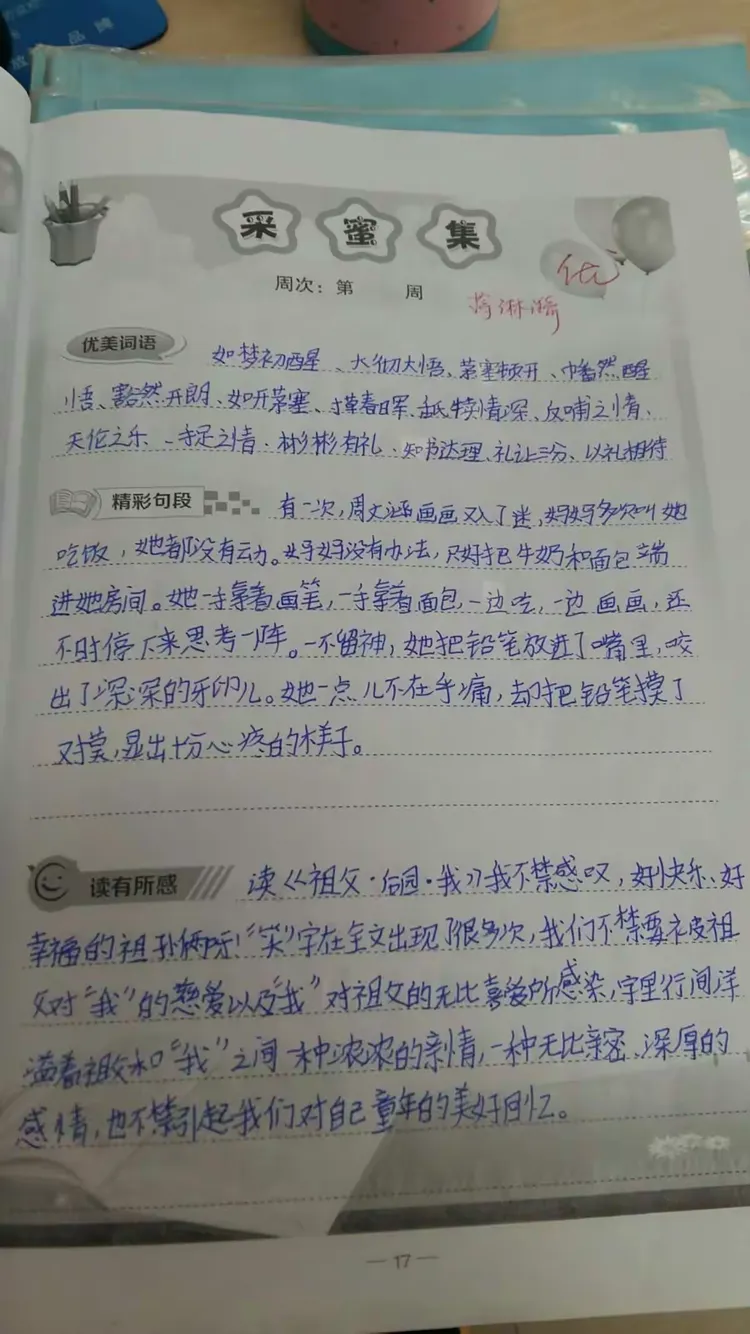 品 博
采 蜜 集
周次：第 周
优
优美词语 如梦初醒、大彻大悟、茅塞顿开、幡然醒
悟、豁然开朗、如听茅塞、舐犊情深、反哺之情、
天伦之乐、手足之情、彬彬有礼、知书达理、礼让三分、以礼相待
精彩句段 有一次，周文涵画画又入了迷，妈妈多次叫她
吃饭，她都没有动。妈妈没有办法，只好把牛奶和面包端
进她房间。她一手拿着画笔，一手拿着面包，一边吃，一边画画，还
不时停下来思考一阵。一不留神，她把铅笔放进了嘴里，咬
出了深深的牙印儿。她一点儿不在乎痛，却把铅笔摸了
又摸，显出十分心疼的样子。
读有所感 读《祖父·后园·我》我不禁感叹，好快乐、好
幸福的祖孙俩呀！“笑”字在全文出现了很多次，我们不禁要被祖
父对“我”的慈爱以及“我”对祖父的无比喜爱所感染，字里行间洋
溢着祖父和“我”之间一种浓浓的亲情，一种无比亲密、深厚的
感情，也不禁引起我们对自己童年的美好回忆。
— 17 —